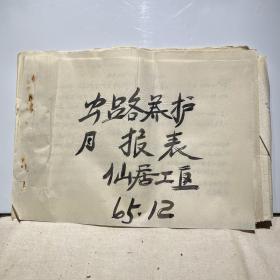 公路养护
月报表
仙居工区
65.12